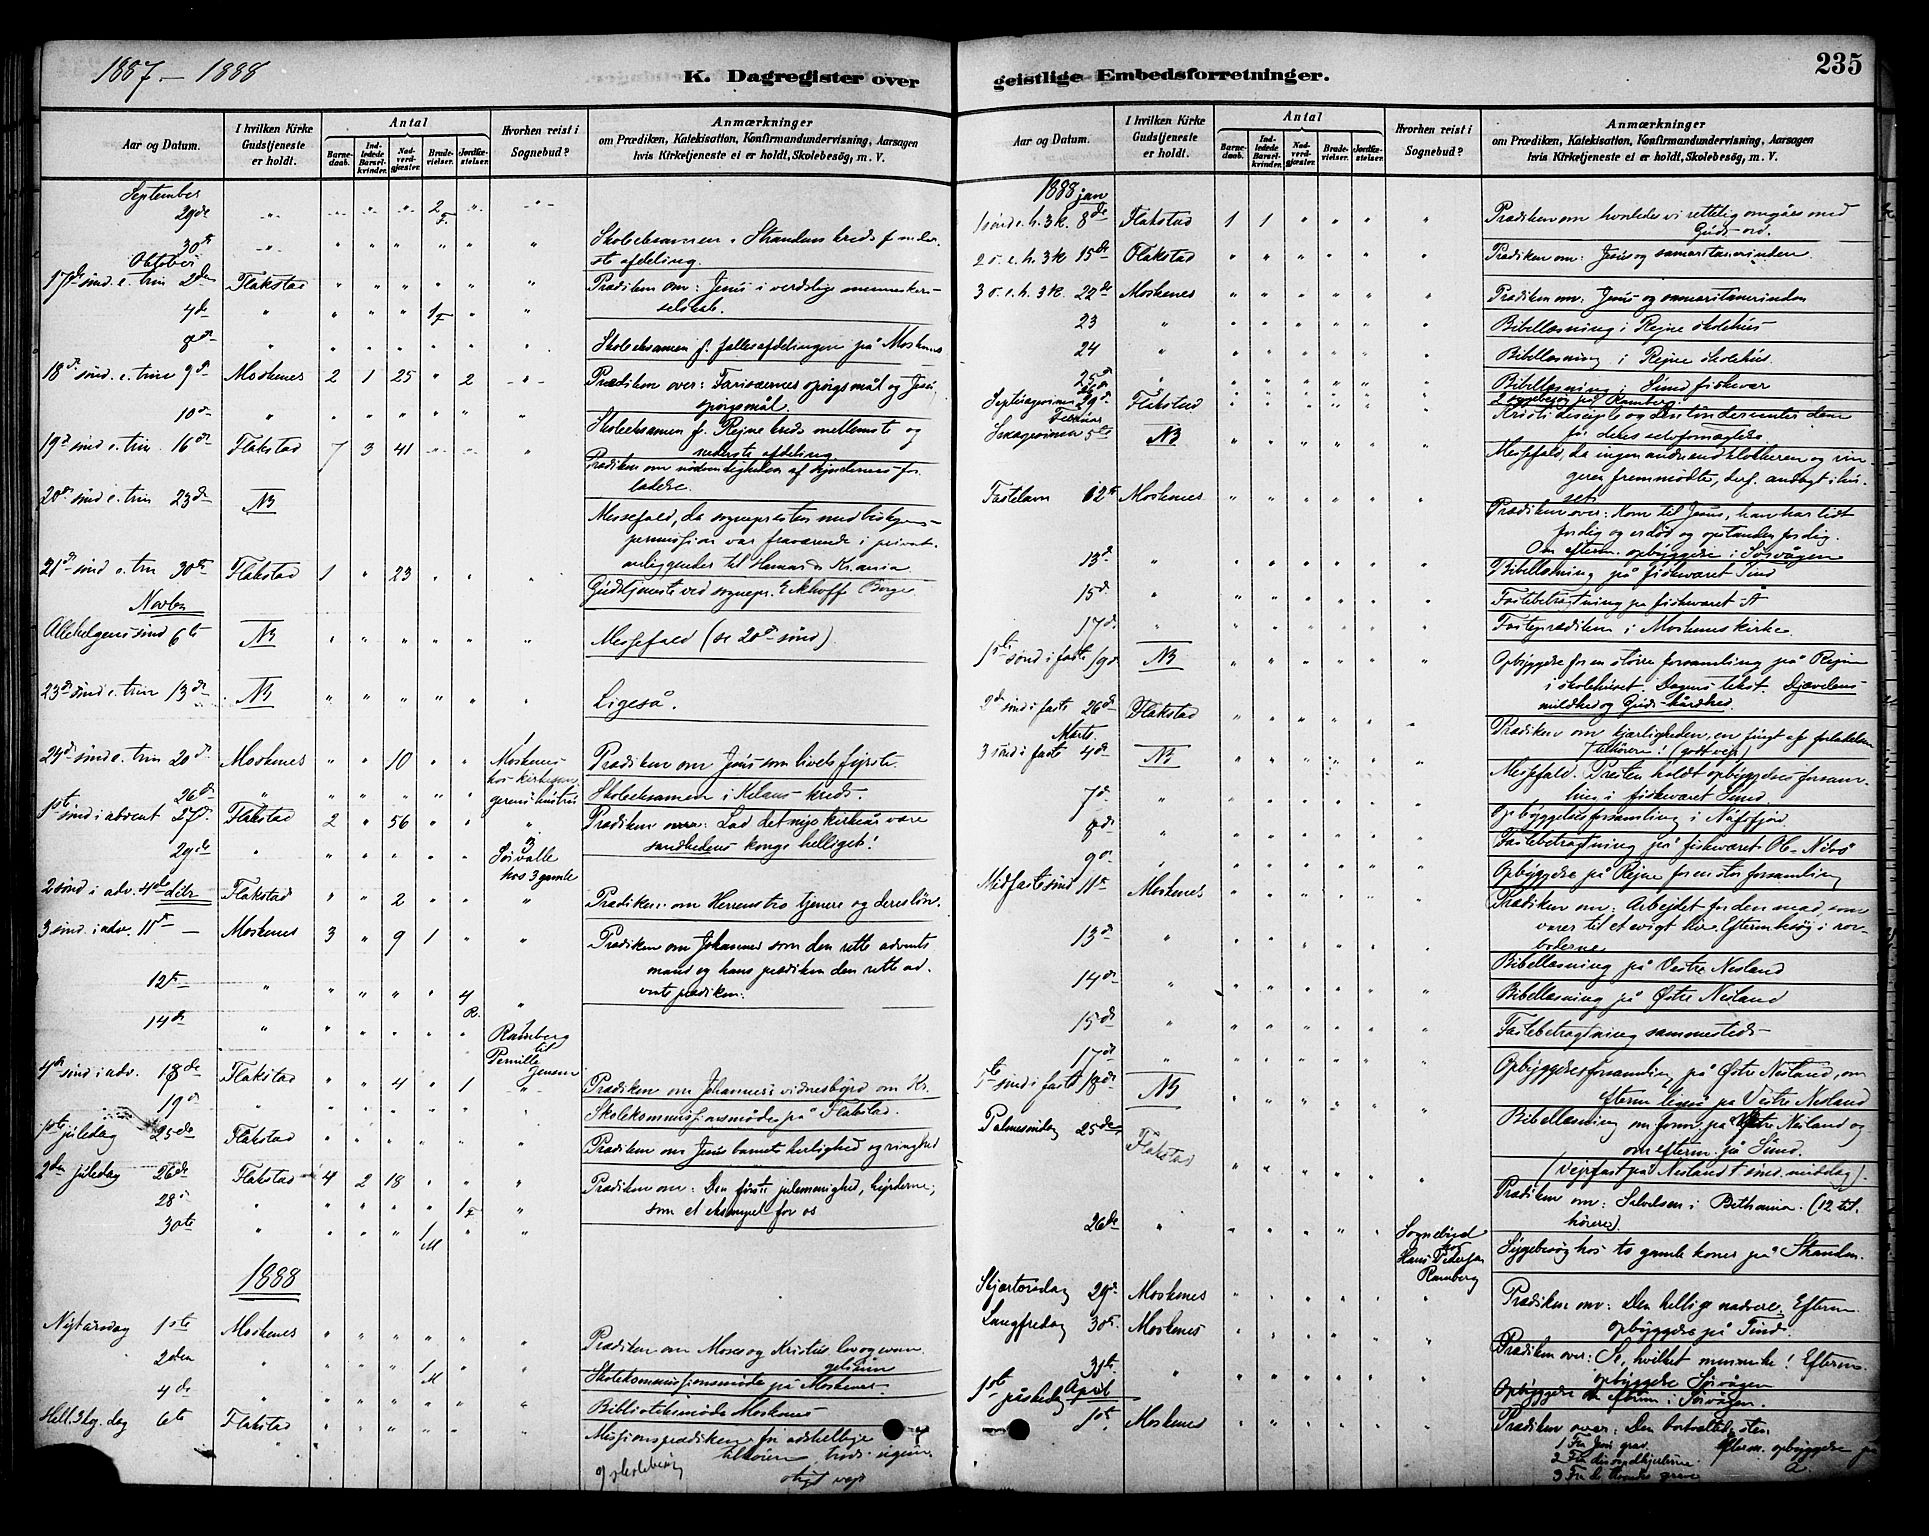 1887 – 1888
K. Dagregister over
geistlige Embedsforretninger.
235
Aar og Datum.
I hvilken Kirke Gudstjeneste er holdt.
Antal
Barnedaab.
Indledede Barselkvinder.
Nadverdgjæster.
Brudevielser.
Jordfæstelser.
Hvorhen reist i Sognebud?
Anmærkninger
om Prædiken, Katekisation, Konfirmandundervisning, Aarsagen
hvis Kirketjeneste ei er holdt, Skolebesög, m. V.
September
29de " " " " 2 F. " "
30te " " " " " " " Skoleeksamen i Strandens kreds f. neder-
ste afdeling.
Oktober
17de sönd. e. trin 2den Flakstad " " " " " " Prædiken om: Jesus i verdslige menneskers
selskab.
4de " " " " 1 F " "
8de " " " " " " " Skoleeksamen f. fællesafdelingen på Moskenes
18de sönd. e. trin 9de Moskenes 2 1 25 " 2 " Prædiken over: Farisæernes spörgsmål og Jesu
spörgsmål.
10de " " " " " " " Skoleeksamen f. Rejne kreds mellemste og
nederste afdeling.
19de sönd e. trin. 16de Flakstad 7 3 41 " " " Prædiken om nödvendigheden af syndernes for-
ladelse.
20de sönd e. trin 23de NB Messefald, da sognepresten med biskopens
permission var fraværende i privat-
anliggender til Hamar & Kr.ania
21de sönd e. trin 30te Flakstad 1 " 23 " " " Gudstjeneste ved sognepr. Eckhoff Borge
Novbr
Allehelgens sönd 6te NB " " " " " " Messefald (se 20de sönd).
23de sönd e. trin 13de NB " " " " " " Ligeså.
24de sönd e. trin 20de Moskenes " " 10 " " Moskenes
hos kirkesan-
gerens hustru
Prædiken om Jesus som livets fyrste.
26de " " " " " " Skoleeksamen i Kilans kreds.
1ste sönd i advent 27de Flakstad 2 " 56 " " " Prædiken over: Lad det nye kirkeår være
sandhedens konge helliget!
29de " " " " " " 3 Sörvalle
hos 3 gamle
2 sönd i adv. 4de debr Flakstad " " 2 " " " Prædiken: om Herrens tro tjenere og deres lön.
3 sönd. i adv. 11te — Moskenes 3 " 9 1 " " Prædiken om Johannes som den rette advents
mand og hans prædiken den rette ad-
vents prædiken.
12te " " " " " 4 R. "
14de " " " " " " Ramberg
til
Pernille
Jensen
4de sönd i adv. 18de Flakstad " " 4 " 1 " Prædiken om Johannes's vidnesbyrd om Kr.
19de " " " " " " " Skolekommissionsmöde på Flakstad.
1ste juledag 25de Flakstad " " " " " " Prædiken om Jesus barnets herlighed og ringhed
2den juledag 26de Flakstad 4 2 18 " " " Prædiken om: Den förste julemenighed, hyrderne,
som et eksempel for os
28de " " " " " 1 F "
30te " " " " 1 M " "
1888
Nytårsdag 1ste Moskenes " " " " " " Prædiken om Moses og Kristus, lov og evan-
gelium
2den " " " " 1 M " " Skolekommissionsmöde på Moskenes.
4de " " " " " " " Bibliotheksmöde Moskenes
Hell. 3 kg. dag 6te Flakstad " " " " " " Missionsprædiken for adskellige
tilhörere, trods ugun-
stigt vejr
Aar og Datum.
I hvilken Kirke Gudstjeneste er holdt.
Antal
Barnedaab.
Indledede Barselkvinder.
Nadverdgjæster.
Brudevielser.
Jordfæstelser.
Hvorhen reist i Sognebud?
Anmærkninger
om Prædiken, Katekisation, Konfirmandundervisning, Aarsagen
hvis Kirketjeneste ei er holdt, Skolebesög, m. V.
1888 jan
1 sönd e. h. 3 k. 8de Flakstad 1 1 " " " " Prædiken om hvorledes vi rettelig omgåes med
Guds ord.
2 s. e. h. 3 k 15de Flakstad " " " " " " Prædiken om: Jesus og samaritanerinden
3 s. e. h. 3 k. 22de Moskenes " " " " " " Prædiken om: Jesus og samaritanerinden
23 " " " " " " " Bibellæsning i Rejne skolehus
24 " " " " " " " Bibellæsning i Rejne skolehus.
25de " " " " " " " Bibellæsning i Sund fiskevær
2 sygebesög på Ramberg.
Septuagesima 29de Flakstad " " " " " " Kristi disciple og
for deres selvfornegtelse.
Februar
Sexagesima 5te NB " " " " " " Messefald, da ingen andre end klokkeren og rin-
geren fremmödte, derf. andagt i hu-
set.
Fastelavn 12te Moskenes " " " " " " Prædiken over: Kom til Jesus, han har lidt
for dig og er död og opstanden for dig.
Om efterm. opbyggelse i Sörvågen
13de " " " " " " " Bibellæsning på fiskeværet Tind
15de " " " " " " " Fastebetragtning på fiskeværet A
17de " " " " " " " Fasteprædiken i Moskenes kirke.
1ste sönd i faste 19de NB " " " " " " Opbyggelse for en större forsamling på Rejne
i skolehuset. Dagens tekst. Djævelens
mildhed og Guds hårdhed.
2de sönd i faste 26de Flakstad " " " " " " Prædiken om kjærligheden, en frugt af forladelsen
7 tilhörere! (godt vejr)
Marts.
3 sönd i faste 4de NB " " " " " " Messefald. Presten holdt opbyggelsesforsam-
ling i fiskeværet Sund.
7de " " " " " " " Opbyggelsesforsamling i Nusfjord
8de " " " " " " " Fastebetragtning på fiskeværet
9de " " " " " " " Opbyggelse på Rejne for en stor forsamling
Midfastesönd 11te Moskenes " " " " " " Prædiken om: Arbejdet for den mad, som
varer til et evigt liv. Efterm besög i ror-
boderne
13de " " " " " " " Bibellæsning på Vestre Nesland
14de " " " " " " " Bibellæsning på Østre Nesland
15de " " " " " " " Fastebetragtning sammesteds
17de " " " " " " " Opbyggelsesforsamling på Østre Nesland, om
efterm ligeså på Vestre Nesland
5te sönd i faste 18de NB " " " " " " Bibellæsning om form. på Nesland og
om efterm. på Sund.
(vejrfast på Nesland t. sönd. middag).
Palmesöndag 25de Flakstad " " " " " " Prædiken om: Salvelsen i Bethania. (12 til-
hörere).
26de " " " " " " Sognebud
hos
Hans Pedersen
Ramberg
Sygebesög hos to gamle koner på Stranden.
Skjærtorsdag 29de Moskenes " " " " " " Prædiken om: Den hellige nadvere. Efterm
opbyggelse på Tind.
Langfredag 30te Moskenes " " " " " " Prædiken over: Se, hvilket menneske! Efterm.
opbyggelse Sörvågen
31te " " " " " " " Opbyggelse i Sörvågen.
April
1ste påskedag 1ste Moskenes " " " " " " Prædiken over: Den bortvæltede sten
1 Fra Jesu grav
2 Fra discipelhjerterne.
3 Fra de troendes grave
Efterm. opbyggelse på
A.